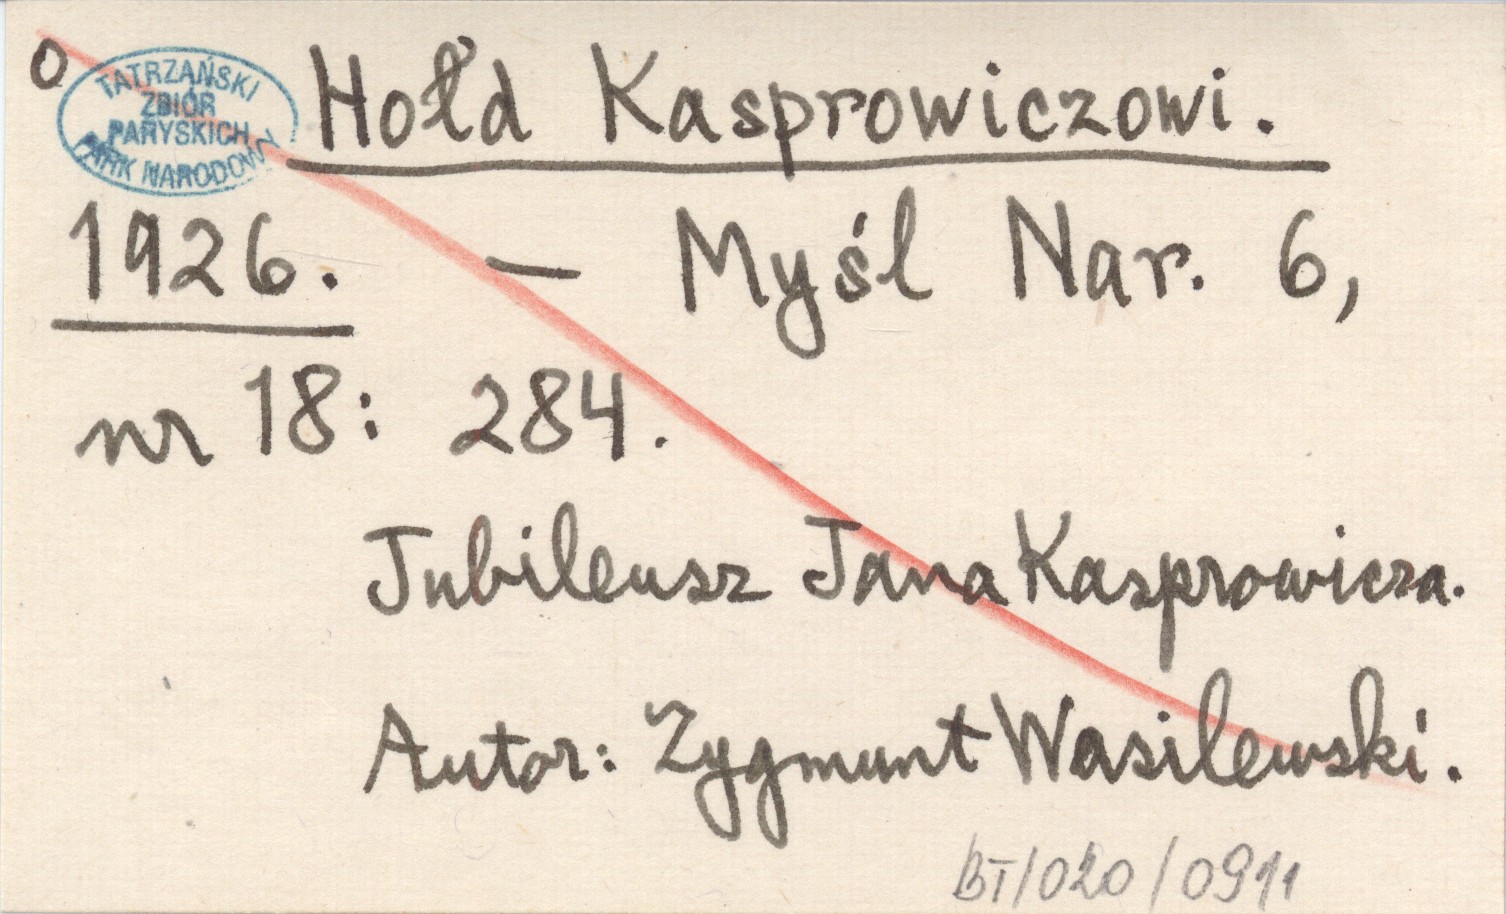 o
TATRZAŃSKI
ZBIÓR
PARYSKICH
PARK NARODOWY
Hołd Kasprowiczowi.
1926. — Myśl Nar. 6,
nr 18: 284.
Jubileusz Jana Kasprowicza.
Autor: Zygmunt Wasilewski.
BT/020/0911